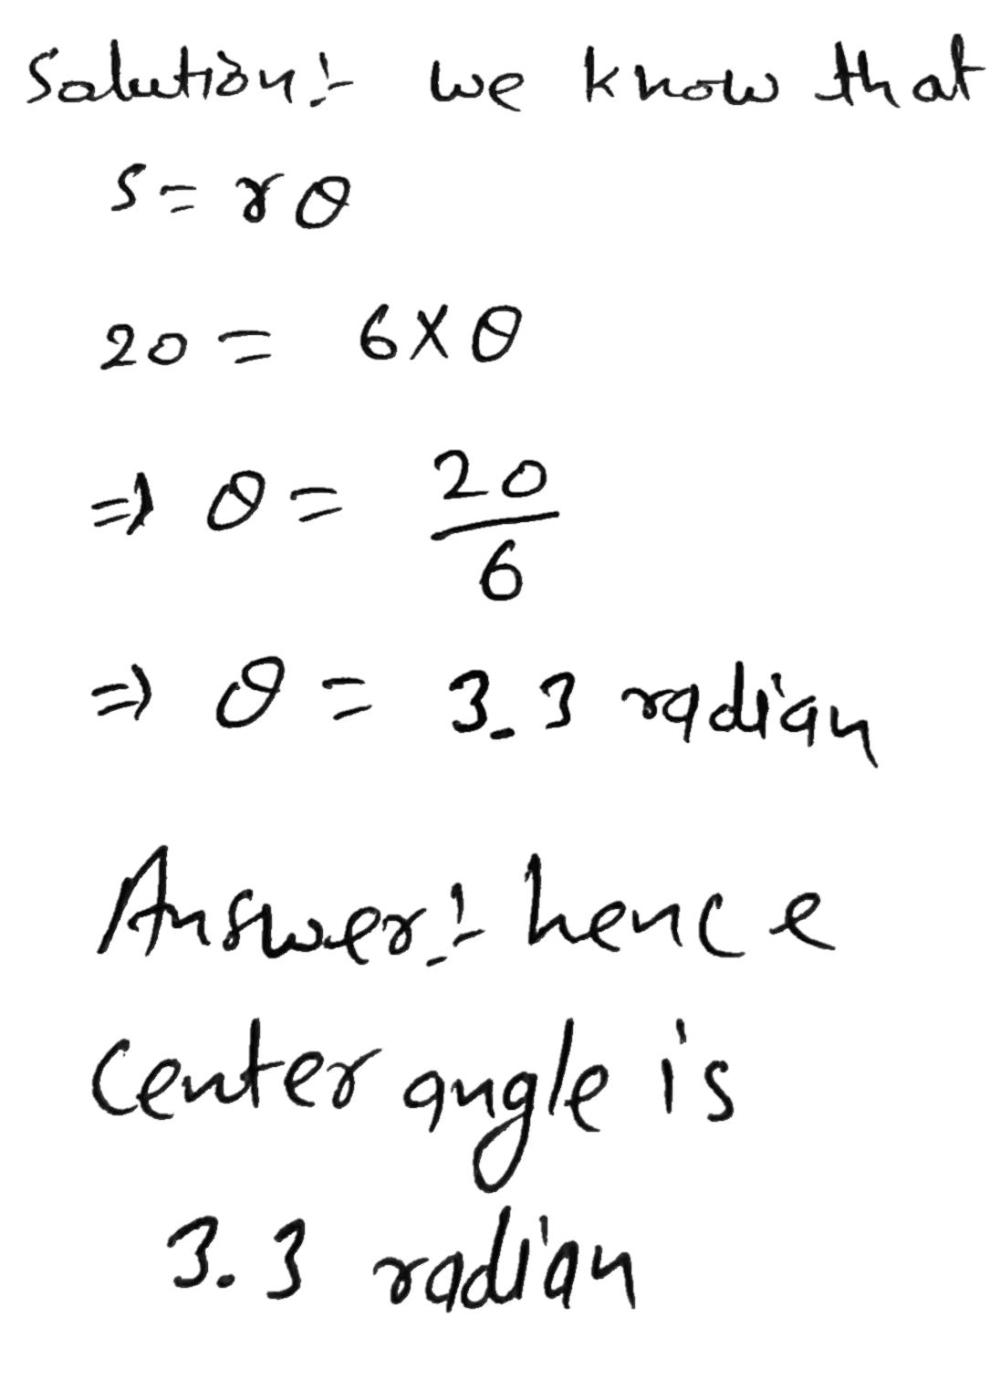 Solution:- we know that
s = rθ
20 = 6 × θ
⇒ θ = 20/6
⇒ θ = 3.3 radian
Answer:- hence
center angle is
3.3 radian